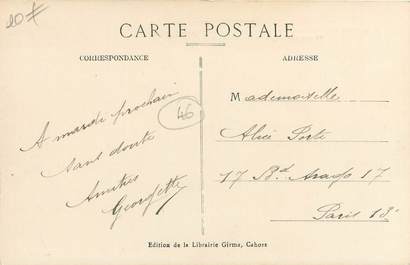 20f
CARTE POSTALE
CORRESPONDANCE
ADRESSE
A mardi prochain
sans doute
Amitiés
Georgette
46
Mademoiselle
Alice Porte
17 Bd Arago 17
Paris 13e
Edition de la Librairie Girma, Cahors